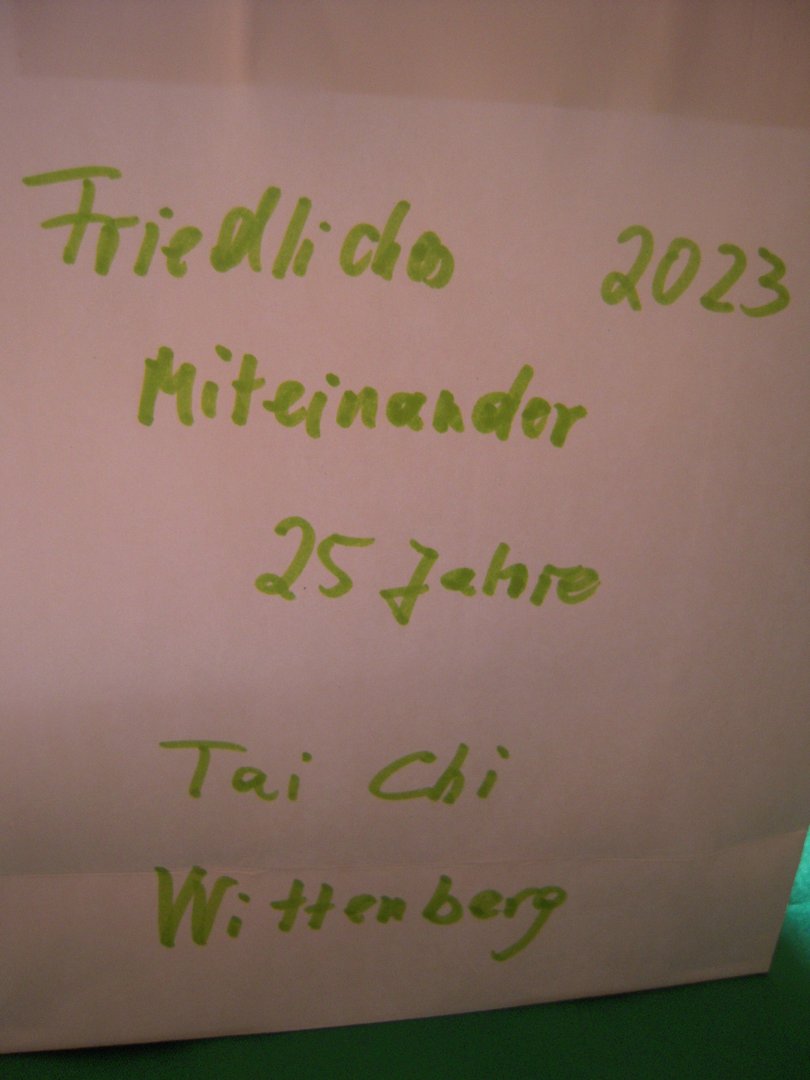 Friedliches 2023
Miteinander
25 Jahre
Tai Chi
Wittenberg